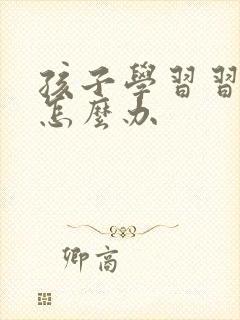 孩子學習習
怎麼办
卿高